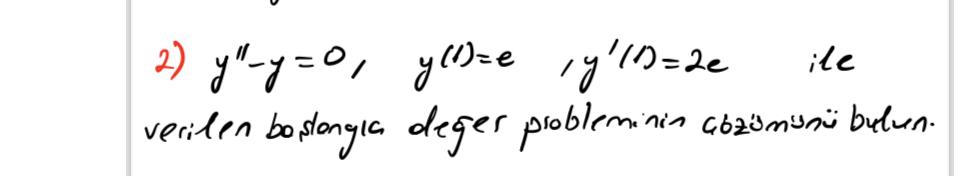 2) y''-y=0, y(1)=e , y'(1)=2e ile
verilen başlangıç değer probleminin çözümünü bulun.